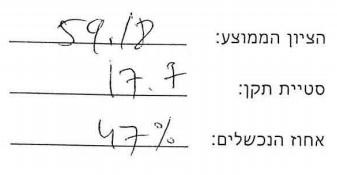 הציון הממוצע: 59.18
סטיית תקן: 17.7
אחוז הנכשלים: 47%